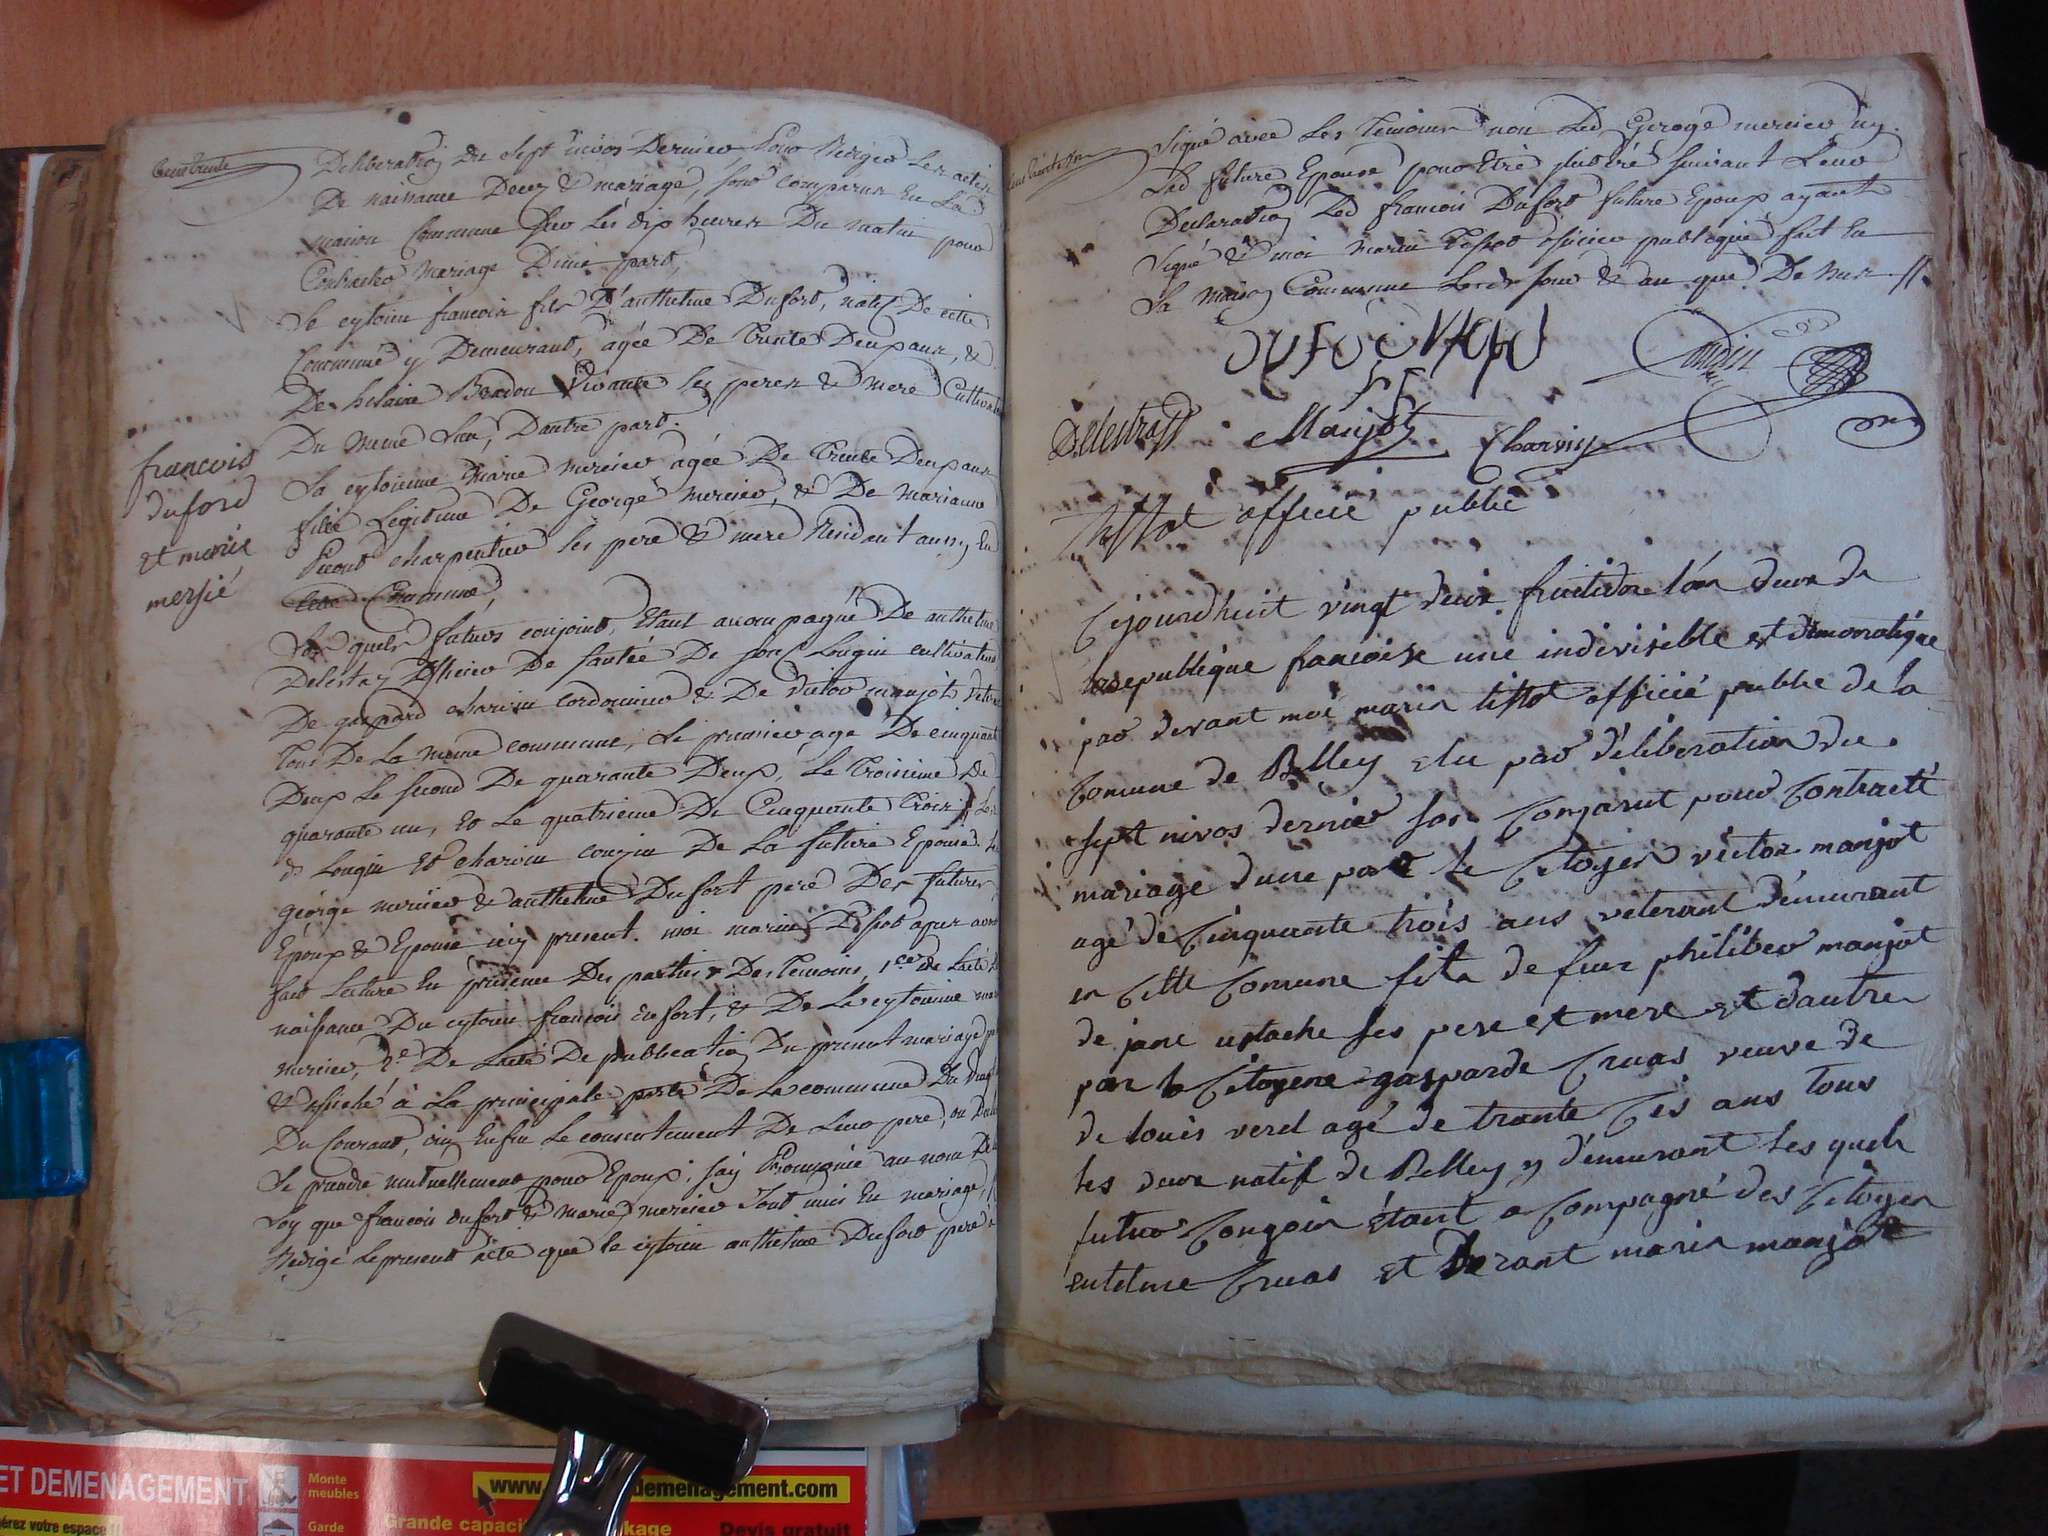 Cent trente
Deliberation du sept nivos Dernier Pour Rediger Les actes
De naissance Decez & mariage, sont comparus En La
maison Commune sur Les dix heures Du matin pour
Contracter mariage D'une part,
Le cytoien francois fils D'anthelme Dufort, natif De cette
Commune y Demeurant, agée De Trente Deux ans, &
De helaine Bardou Vivante ses peres & mere Cultivat
Du meme Lieu, Dautre part.
francois
duford
et marie
mersié
La cytoienne Marie mercier agée De Trente Deux ans
fille Legitime De George mercier, & De Marianne
charpentier ses pere & mere Residant aussy En
Commune,
Les quels futurs conjoint, Etant accompagné De anthelme
Delestraz officier De santée De Lougin cultivateur
De gaspard charvin cordonnier & De Victor manjot veter
Tous De La meme commune, Le premier age De cinquant
Deux Le second De quarante Deux, Le Troisieme De
quarante un, Et Le quatrieme De Cinquante Trois, Les
d Lougin Et charvin cousin De La future Epouse Le
géorge mercier & anthelme Dufort pere Des futures
Epoux & Epouse icy present. moi marin Tissot apres avoir
fait Lecture En presence Des parties & Des Temoins, 1er de Lacte de
naissance Du cytoien francois dufort, & De La cytoienne mar
mercier, 2e De Lacte De publication Du present mariage
& affiché à La principale porte De La commune Du
Du Courant, oui Enfin Le consentement De Leur pere, ou
Se prendre mutuellement pour Epoux, j'ay Prononcé au nom De
Loy que francois dufort & marie mercier sont unis En mariage,
Redigé Le present acte que le cytoien anthelme Dufort pere a
Signé avec Les Temoins non Led George mercier ny
Lad future Epouse pour Etre illitéré suivant Leur
Declaration Led francois Dufort future Epoux ayant
Signé & moi marin Tissot officier publiqué fait En
La maison Commune Lesdr jour & an que De sus //.
Delestraz Manjot Charvin
Tissot officié public
Cejourdhuit vingt deux fruitidore lan deux de
la republique francoise une indivisible et democratique
par devant moi marin tissot officié public de la
Comune de Belley elu par déliberation du
sept nivos dernier son Comparut pour Contracté
mariage dune part le Citoyen victor manjot
agé de Cinquante trois ans veterant démeurant
en Cette Comune fils de feux philiber manjot
de jane ustache ses pere et mere et dautre
par la Citoyene gasparde Cruas veuve de
de louis verd agé de trante Ceis ans tous
les deux natif de Belley y démeurant Les quels
futur Congoin étant a Compagné des Citoyen
entelme Cruas et Durant marin manjot
ET DEMENAGEMENT
Monte
meubles
www. demenagement.com
Garde
Grande capaci kage
Devis gratuit